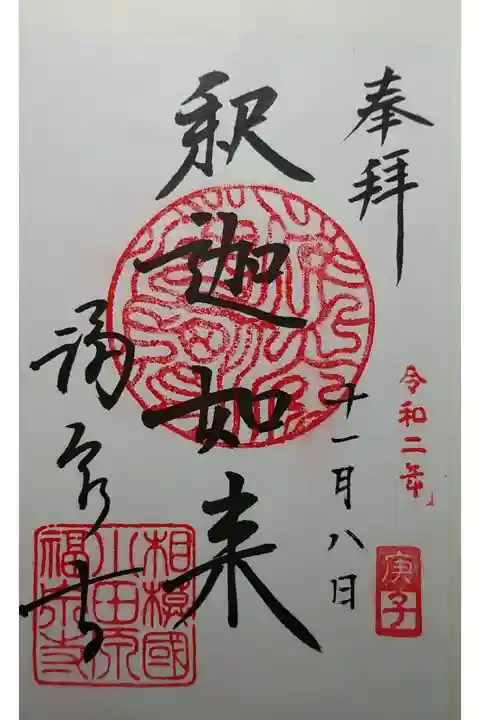 奉拝
令和二年
十一月八日
庚子
釈迦如来
福泉寺
相模國
小田原
福泉寺